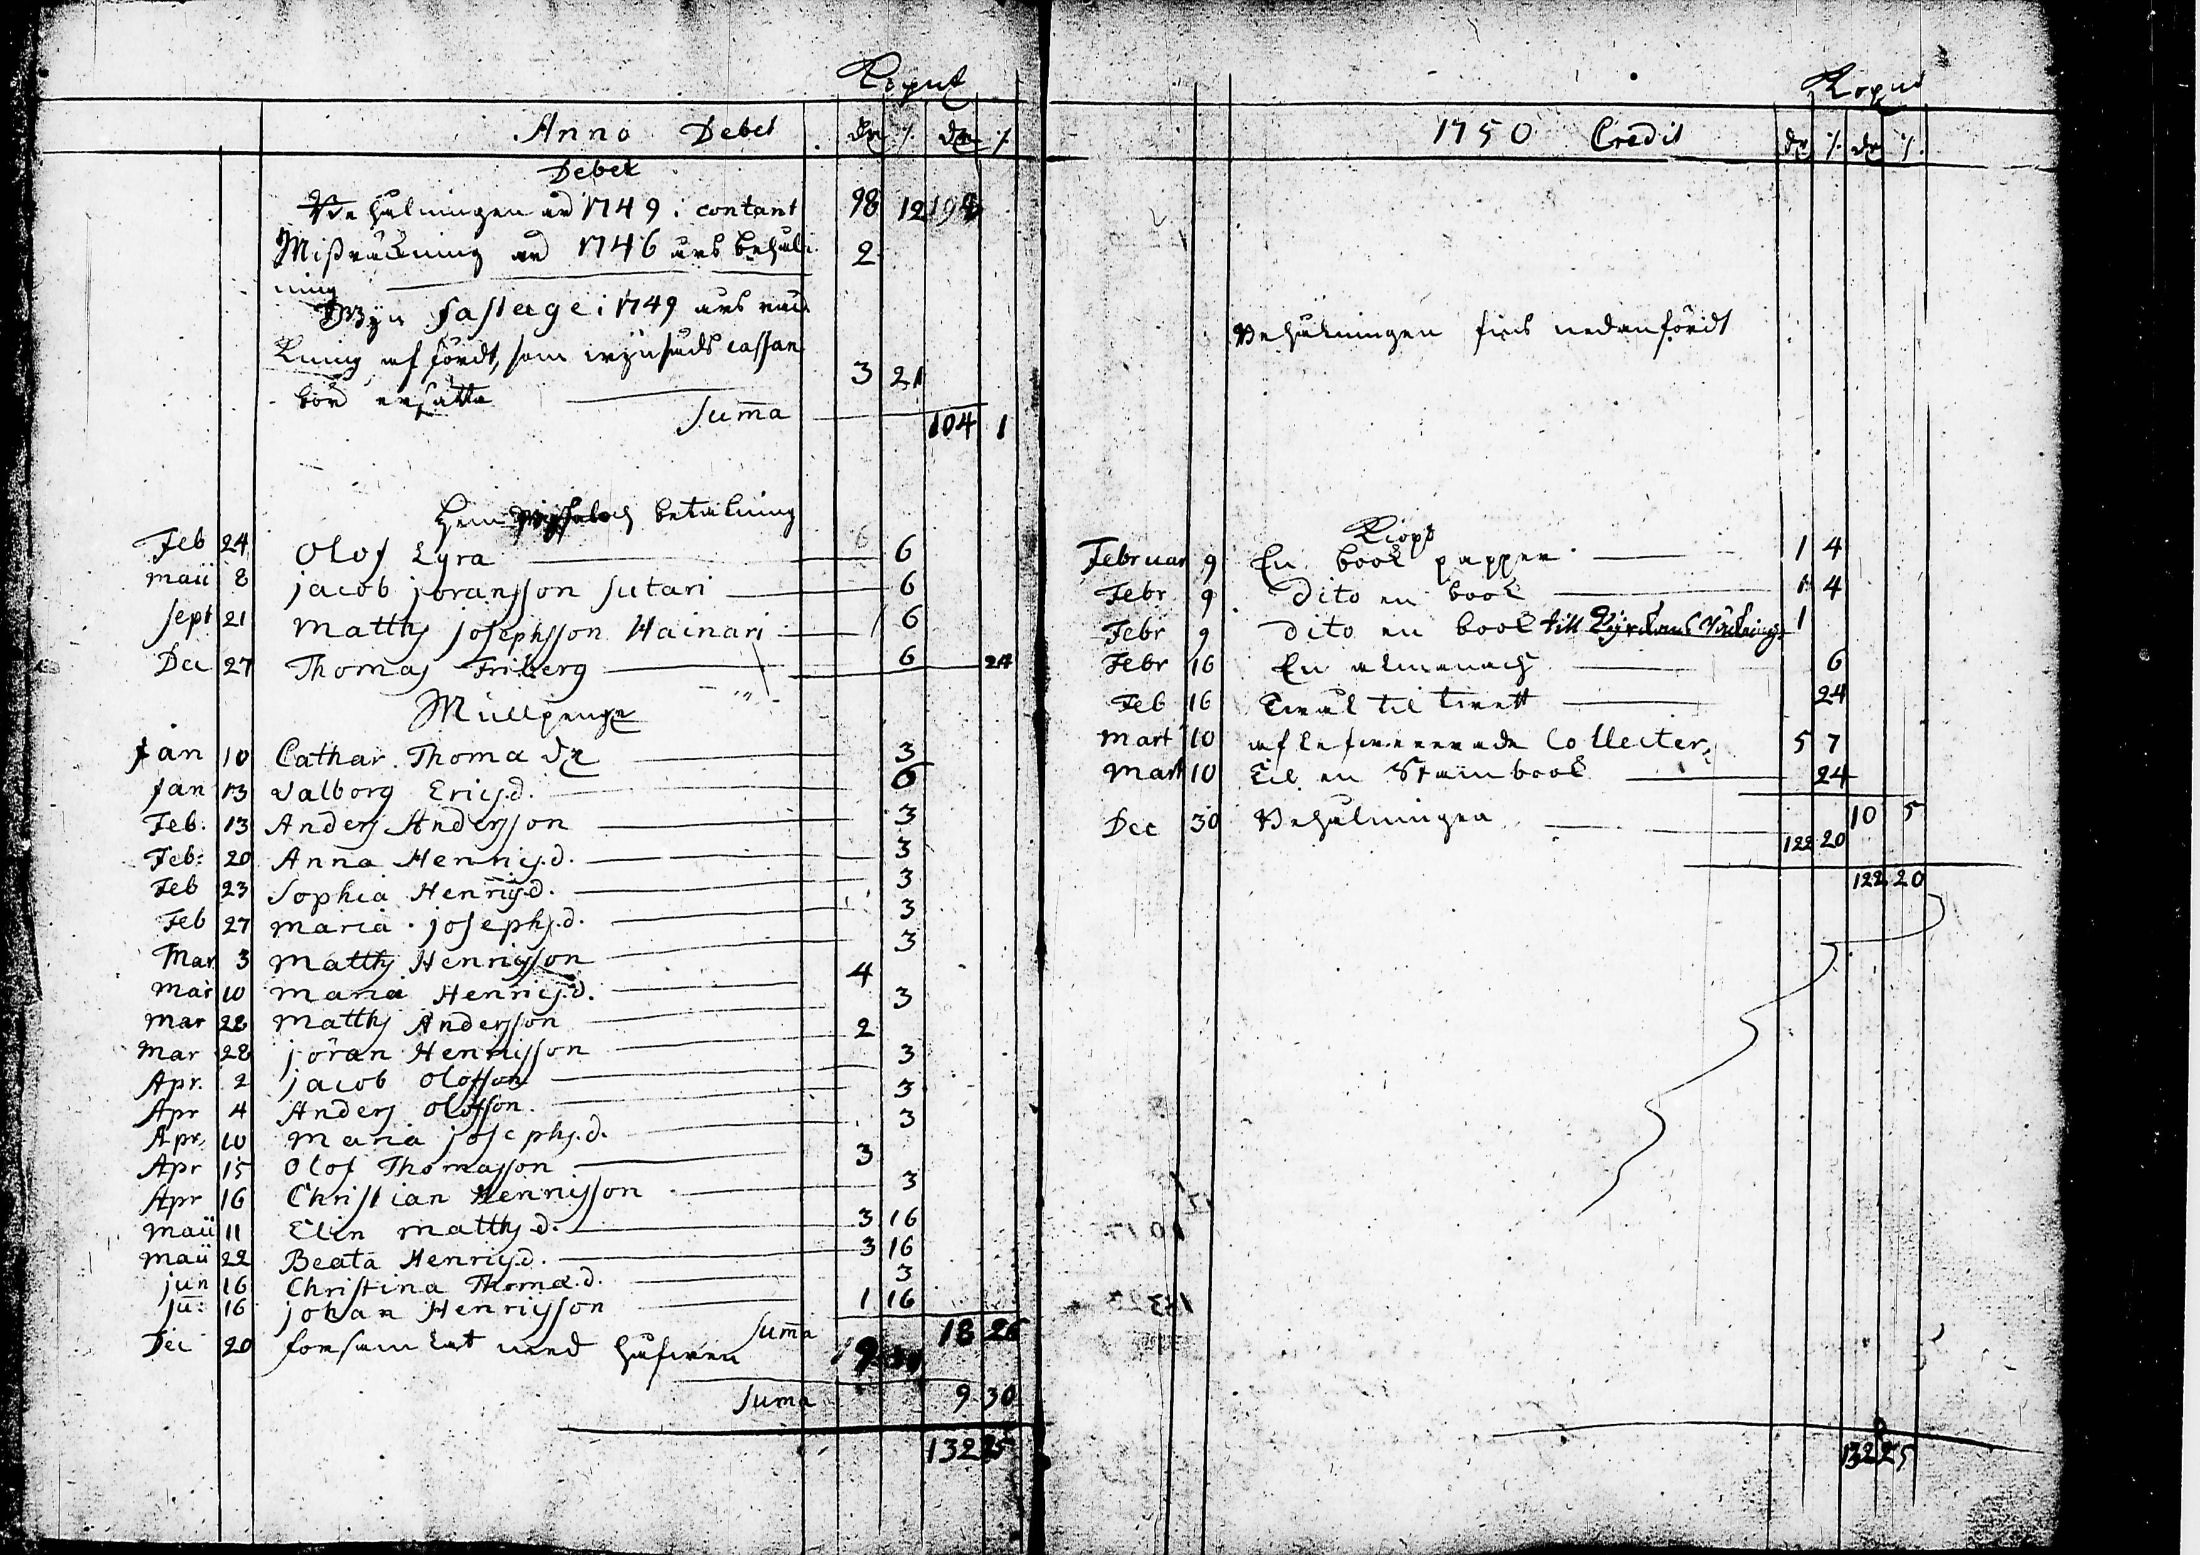 Anno Debet
dr
dr
Debet
Behålningen av 1749: contant 98 12
Mißräkning av 1746 års behål-
2
ning
Wijn fastage i 1749 års räk-
kning
som
cassan
bör ersätta 3 21
Suma 104 1
betalning
Feb 24 Olof Lyra 6
maii 8 jacob joransson Sutari 6
Sept 21 Matths josephsson Hainari 6
Dec 27 Thomas Friberg 6 24
Mullpenge
Jan 10 Cathar. Thoma dr 3
Jan 13 Valborg Erics.d. 6
Feb. 13 Anders Andersson 3
Feb: 20 Anna Henrics.d. 3
Feb 23 Sophia Henrics.d. 3
Feb 27 maria josephs.d. 3
Mar 3 matths Henricsson 3
mar 10 maria Henrics.d. 4
mar 28 matths Andersson 3
mar 28 jöran Henricsson 2
Apr. 2 jacob olofsson 3
Apr 4 Anders olofsson 3
Apr. 10 maria josephs.d. 3
Apr 15 Olof Thomasson 3
Apr 16 Christian Henricsson 3
maii 11 Elin matths.d. 3 16
maii 22 Beata Henrics.d. 3 16
jun 16 Christina Thoma.d. 3
ju: 16 johan Henricsson 1 16
Suma 18 26
Dec 20 forsamlat med håfwen 9
Suma 9 30
132 25
1750 Credit
dr
dr
Behålningen fins nedanfördt
Kiöpt
Februar 9 En book papper 1 4
Febr 9 dito en book 1 4
Febr 9 dito en book till 1
Febr 16 En almanach 6
Feb 16 24
Mart 10 af lefwererade Collecter 5 7
Mart 10 Til en Stambook 24
10 5
Dec 30 Behålningen 122 20
122 20
132 25